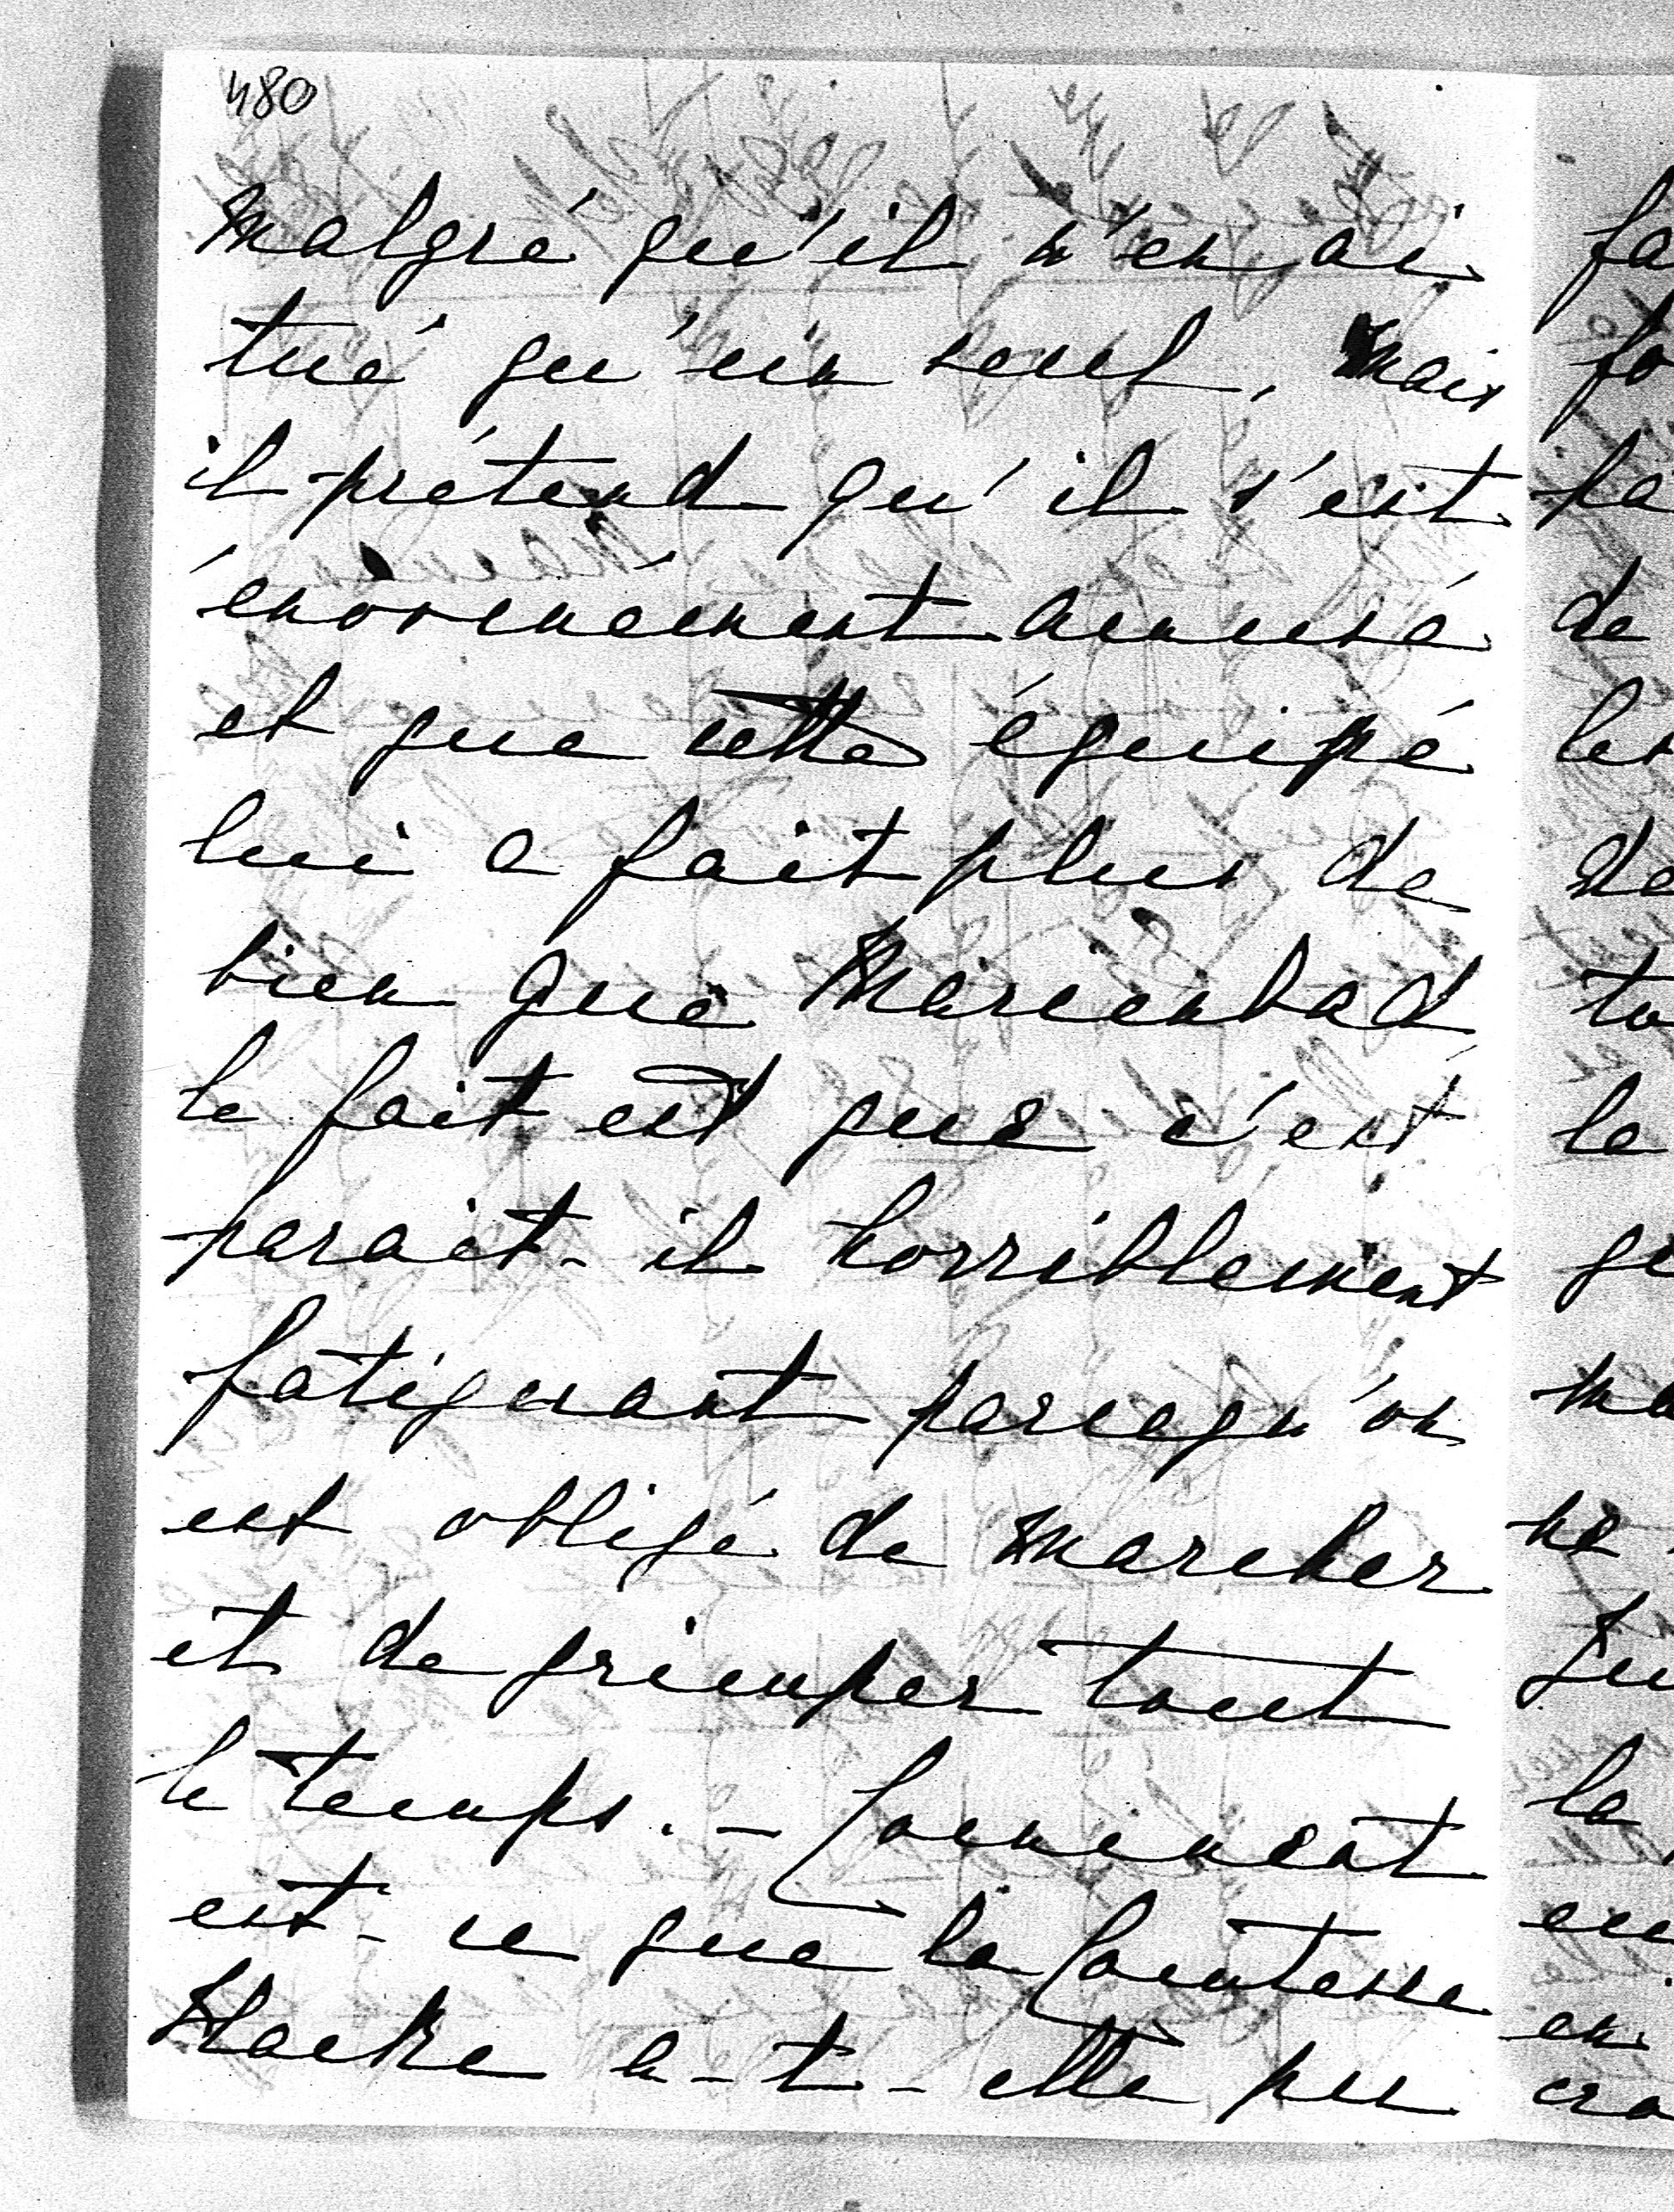 480
malgré qu'il n'en ai
tué qu'un seul, mais
il prétend qu'il s'est
énormément amusé
et que cette équipé
lui a fait plus de
bien que Marienbad
le fait est que c'est
parait-il horriblement
fatiguant parcequ'on
est obligé de marcher
et de grimper tout
le temps. - Comment
est-ce que la Comtesse
a-t-elle pu